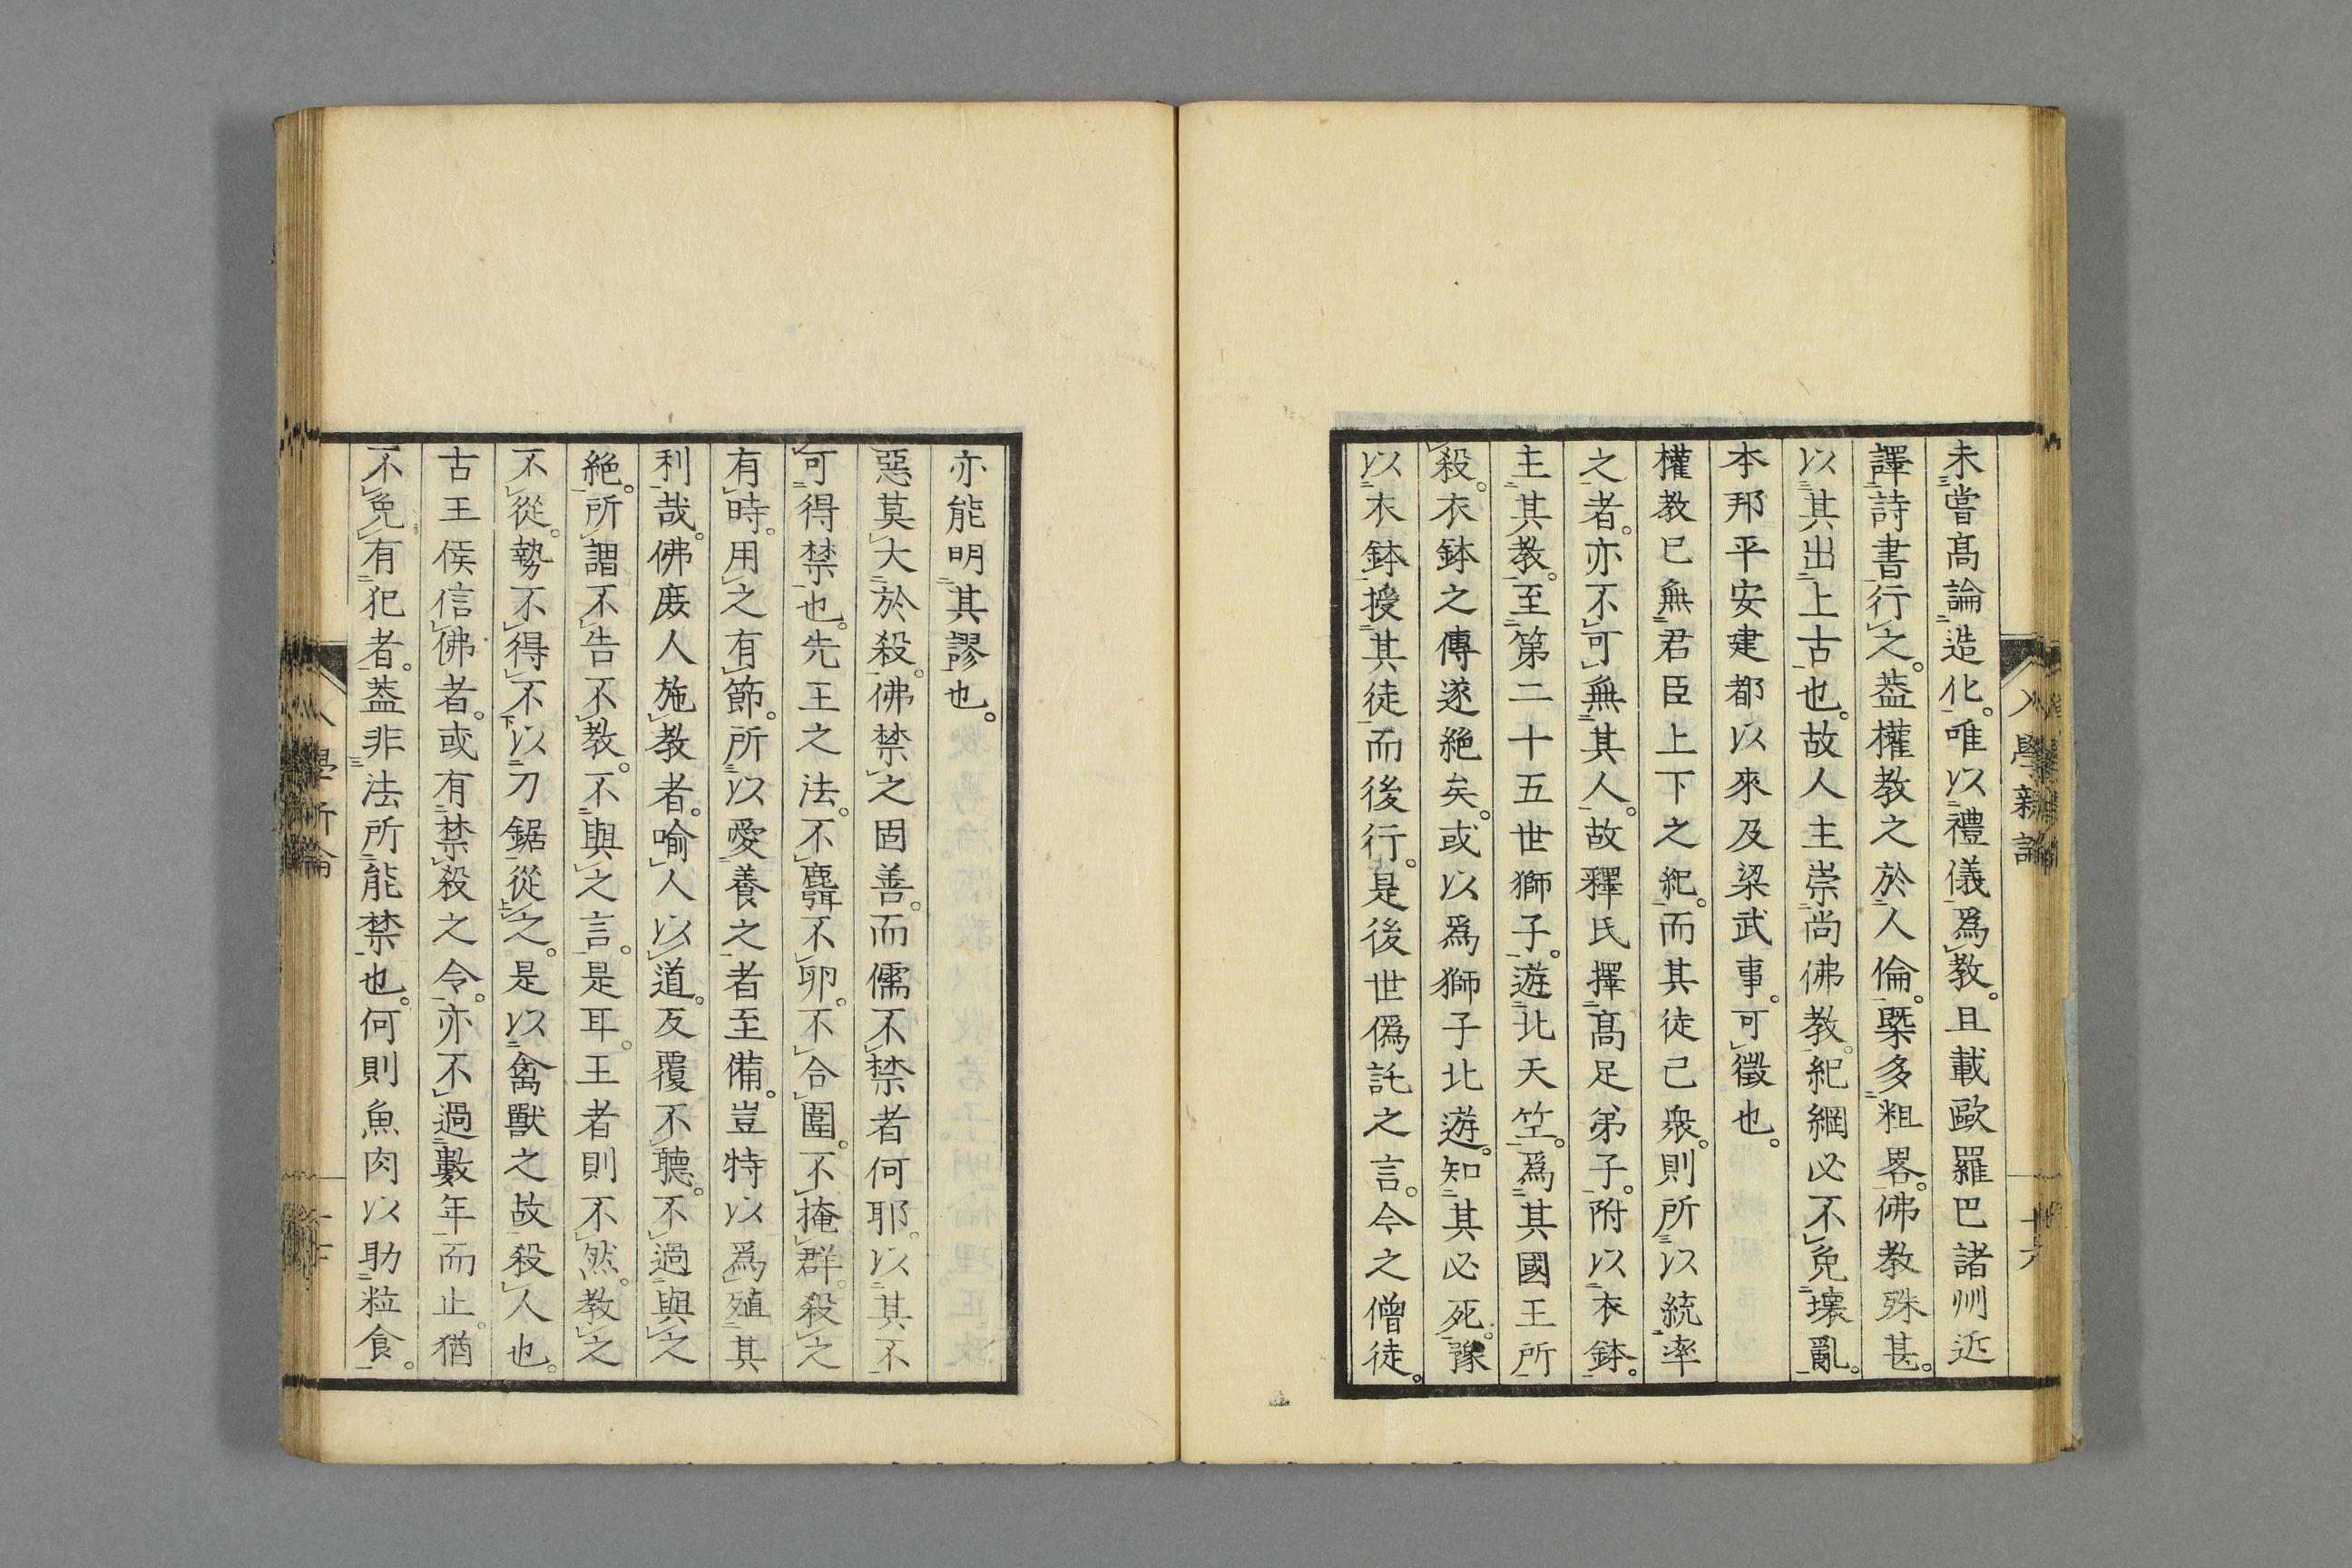 未嘗髙論造化。唯以禮儀爲教。且載歐羅巴諸州近
譯詩書行之。葢權教之於人倫。槩多粗畧。佛教殊甚。
以其出上古也。故人主崇尚佛教。紀綱必不免壞亂。
本邦平安建都以來及梁武事。可徵也。
權教已無君臣上下之紀。而其徒已衆。則所以統率
之者。亦不可無其人。故釋氏擇髙足弟子。附以衣鉢。
主其教。至第二十五世獅子。遊北天竺。爲其國王所
殺。衣鉢之傳遂絶矣。或以爲獅子北遊。知其必死。豫
以衣鉢授其徒而後行。是後世僞託之言。今之僧徒。
亦能明其謬也。
惡莫大於殺。佛禁之固善。而儒不禁者何耶。以其不
可得禁也。先王之法。不麛不卵。不合圍。不掩群。殺之
有時。用之有節。所以愛養之者至備。豈特以爲殖其
利哉。佛庻人施教者。喻人以道。反覆不聽。不過與之
絶。所謂不告不教。不與之言。是耳。王者則不然。教之
不從。勢不得不以刀鋸從之。是以禽獸之故殺人也。
古王侯信佛者。或有禁殺之令。亦不過數年而止。猶
不免有犯者。葢非法所能禁也。何則魚肉以助粒食。
入學新論
十六